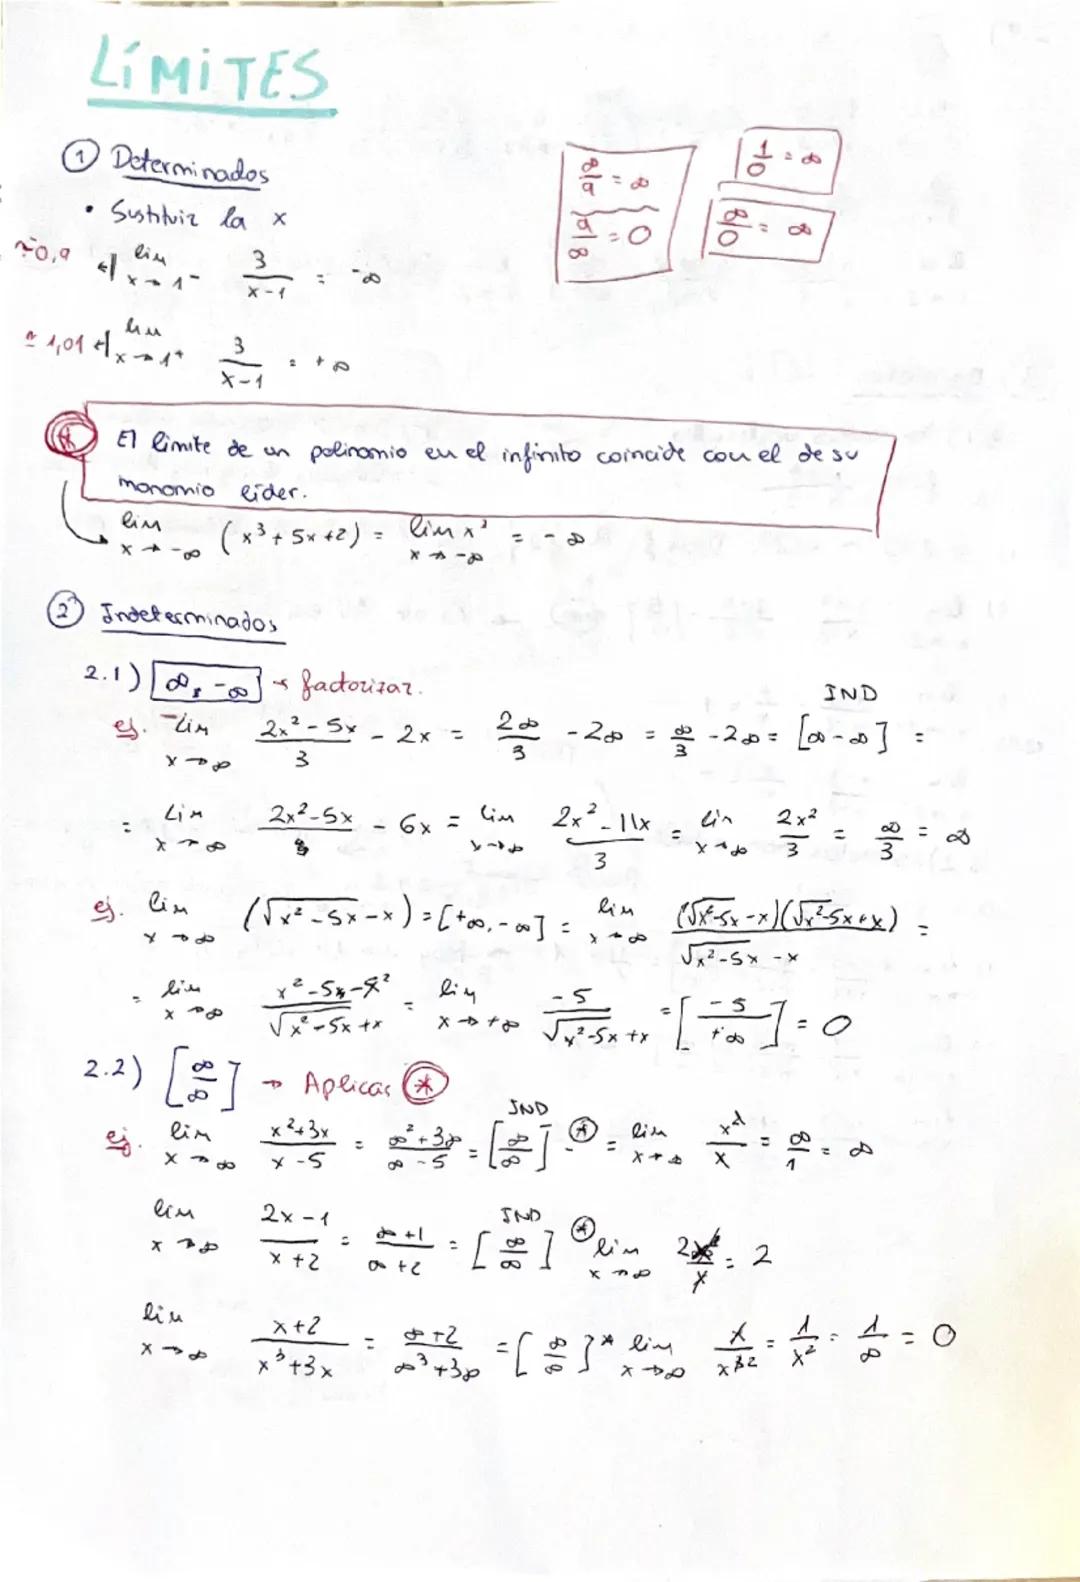 LÍMITES
① Determinados
• Sustituir la x
∞/a = ∞
a/∞ = 0
1/0 = ∞
∞/0 = ∞
≃0,9 ← lim x→1⁻ 3/(x-1) = -∞
≃1,01 ← lim x→1⁺ 3/(x-1) = +∞
(*) El límite de un polinomio en el infinito coincide con el de su
monomio líder.
lim x→-∞ (x³+5x+2) = lim x³ x→-∞ = -∞
② Indeterminados
2.1) ∞, -∞ → factorizar.
IND
ej. lim x→∞ (2x²-5x)/3 - 2x = 2∞/3 - 2∞ = ∞/3 - 2∞ = [∞-∞] =
= lim x→∞ (2x²-5x)/3 - 6x = lim x→∞ (2x²-11x)/3 = lim x→∞ 2x²/3 = ∞/3 = ∞
ej. lim x→∞ (√(x²-5x) - x) = [+∞,-∞] = lim x→∞ ((√(x²-5x) - x)(√(x²-5x) + x))/(√(x²-5x) - x) =
= lim x→∞ (x²-5x-x²)/(√(x²-5x) + x) = lim x→+∞ -5/(√(x²-5x) + x) = [-5/+∞] = 0
2.2) [∞/∞] → Aplicas (*)
IND
ej. lim x→∞ (x²+3x)/(x-5) = (∞²+3∞)/(∞-5) = [∞/∞] (*) = lim x→∞ x²/x = ∞/1 = ∞
IND
lim x→∞ (2x-1)/(x+2) = (∞+1)/(∞+2) = [∞/∞] (*) lim x→∞ 2x/x = 2
lim x→∞ (x+2)/(x³+3x) = (∞+2)/(∞³+3∞) = [∞/∞] * lim x→∞ x/x³ = 1/x² = 1/∞ = 0